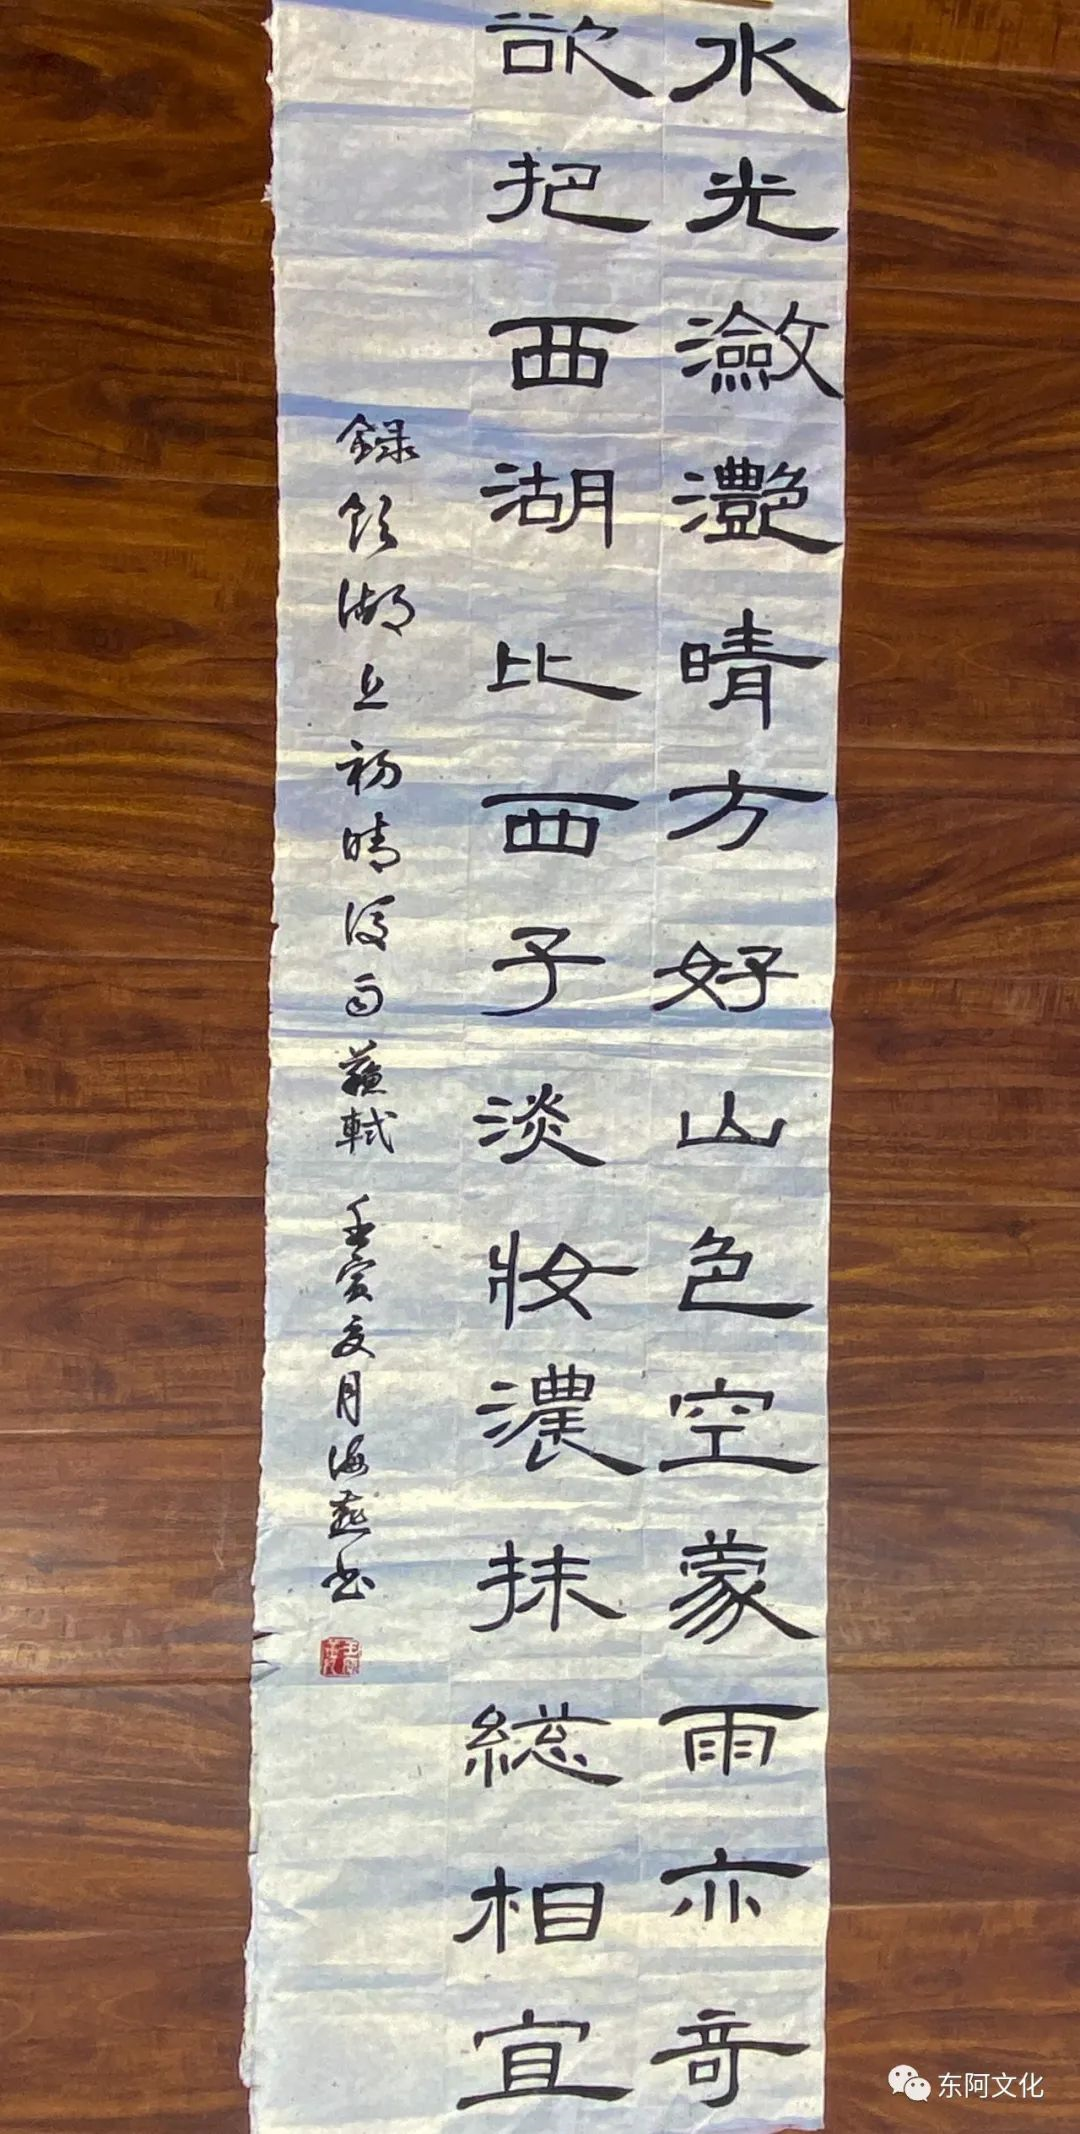 水光瀲灩晴方好山色空蒙雨亦奇
欲把西湖比西子淡妝濃抹総相宜
録飲湖上初晴後雨蘇軾 壬寅夏月海燕书
东阿文化